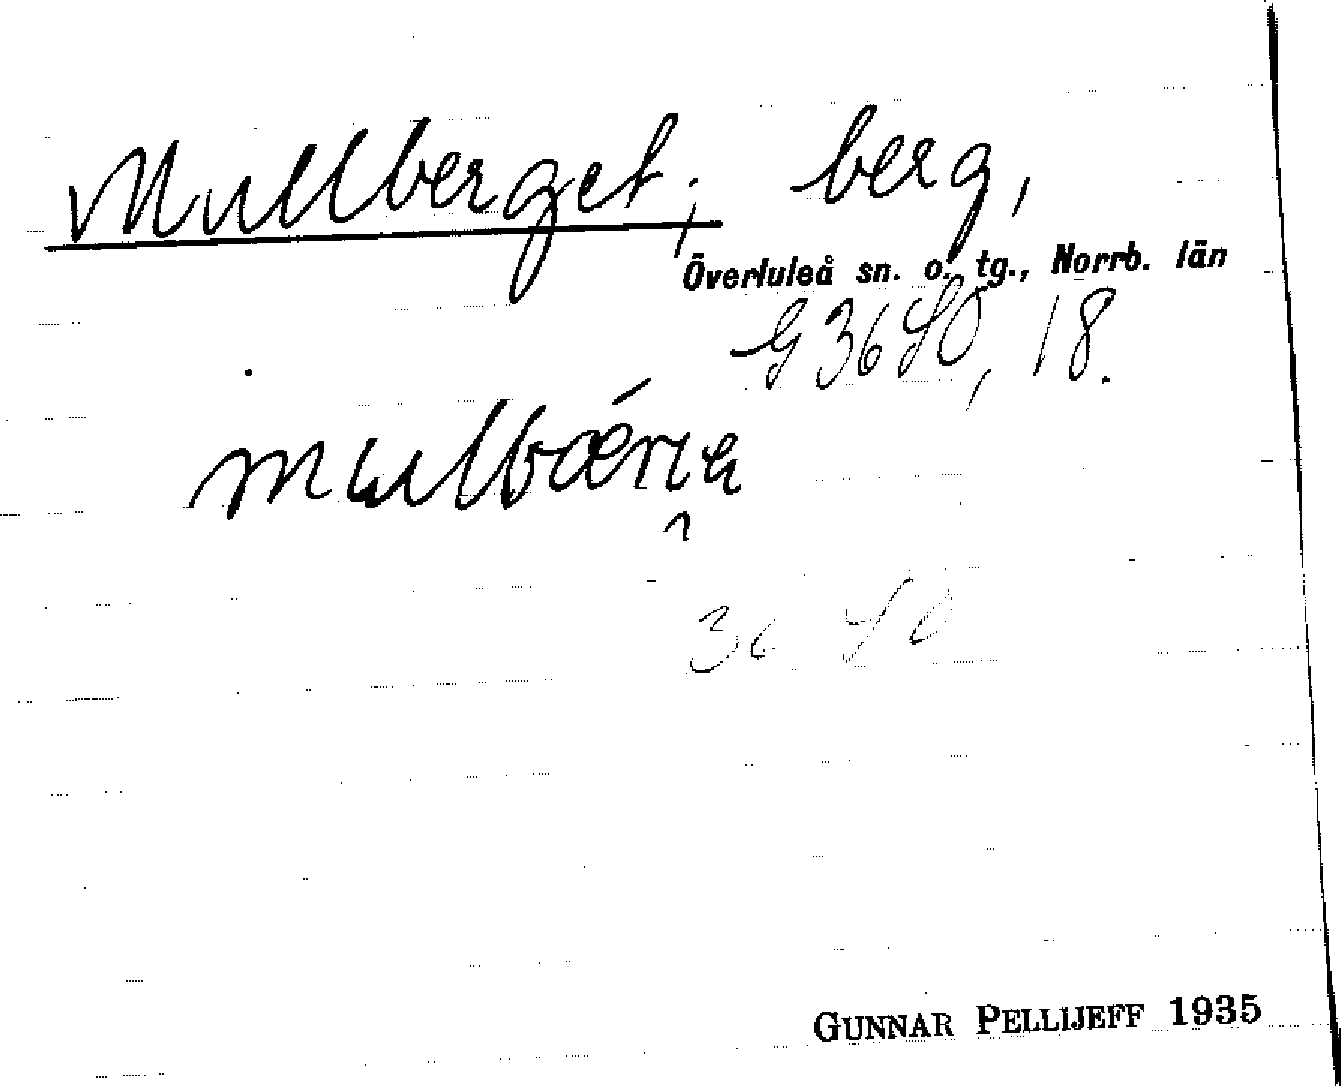 Mullberget; berg,
Överluleå sn. o. tg., Norrb. län
G 3640, 18.
3640
GUNNAR PELLIJEFF 1935